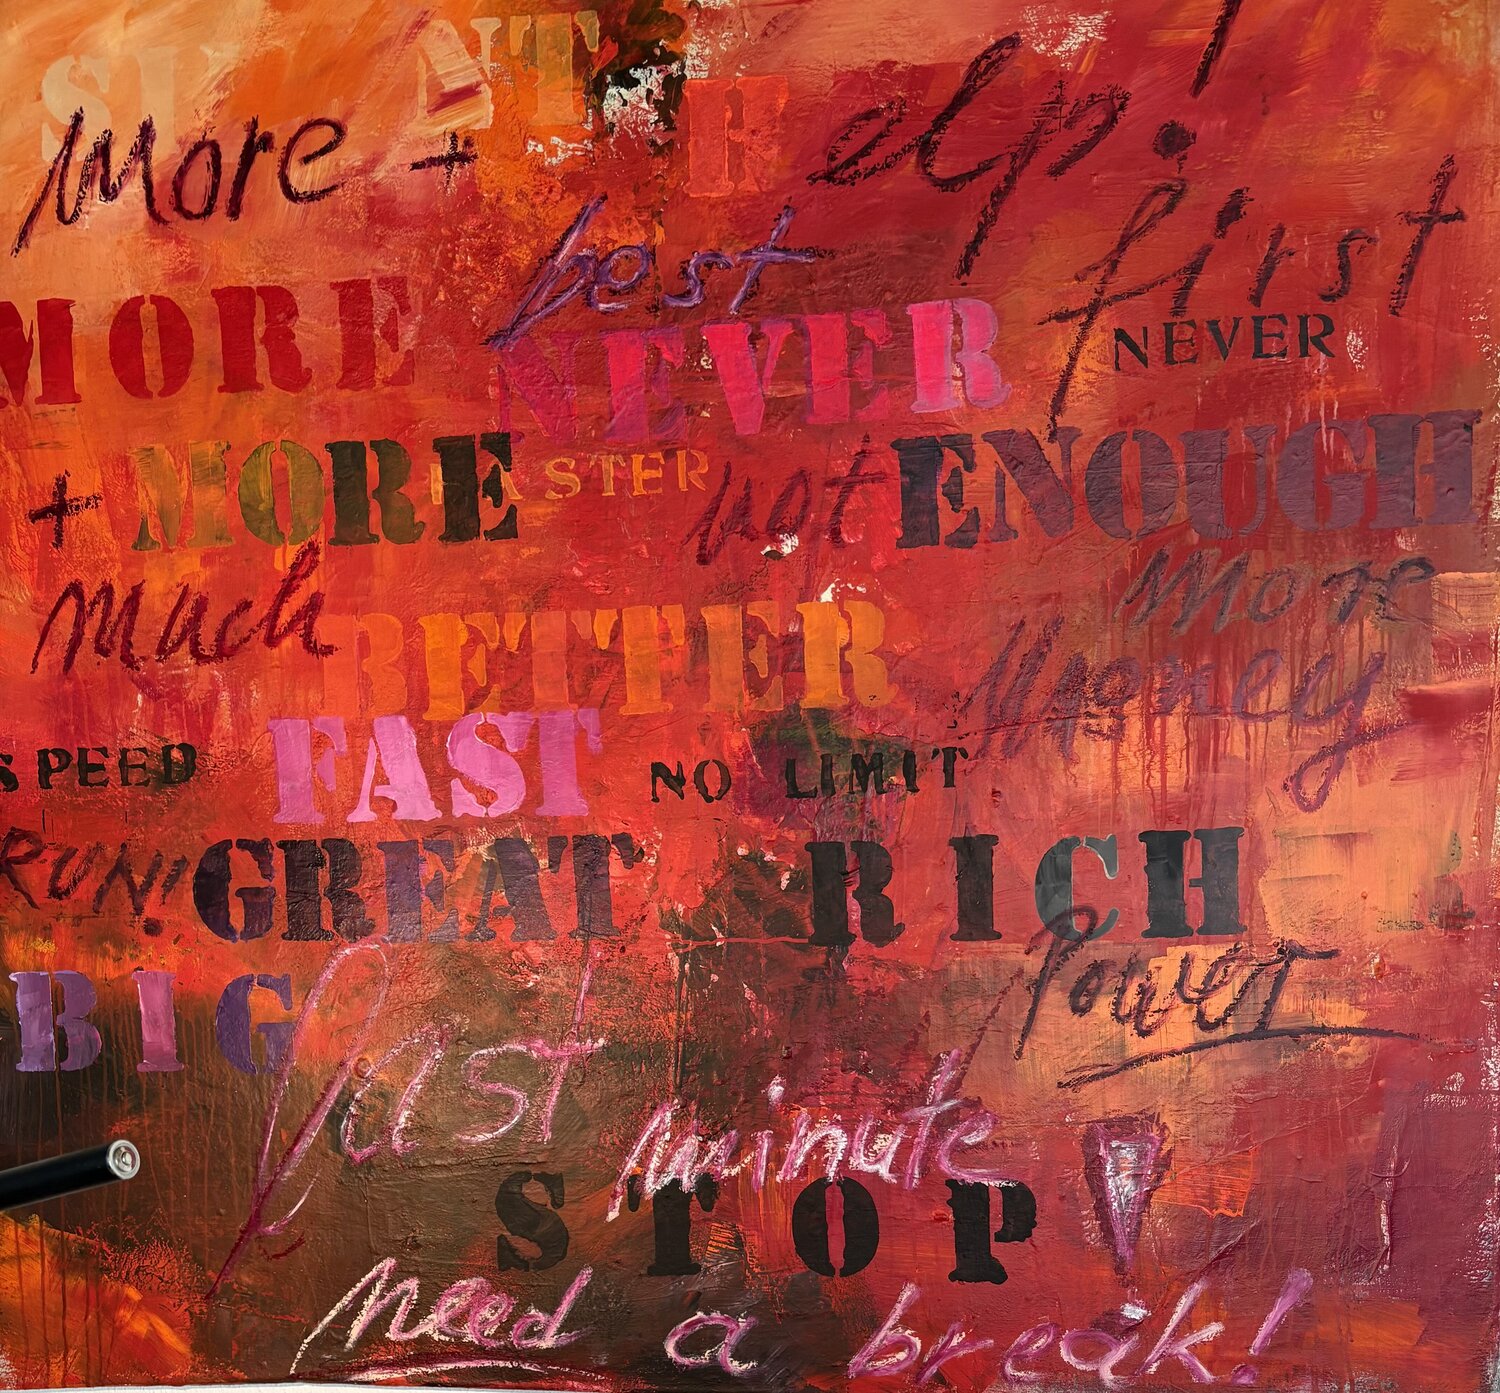 more +
elp!
best
first
MORE NEVER NEVER
+ MORE FASTER not ENOUGH
much BETTER more
money
SPEED FAST NO LIMIT
RUN! GREAT RICH
Power
BIG
last
minute
STOP !
need a break!